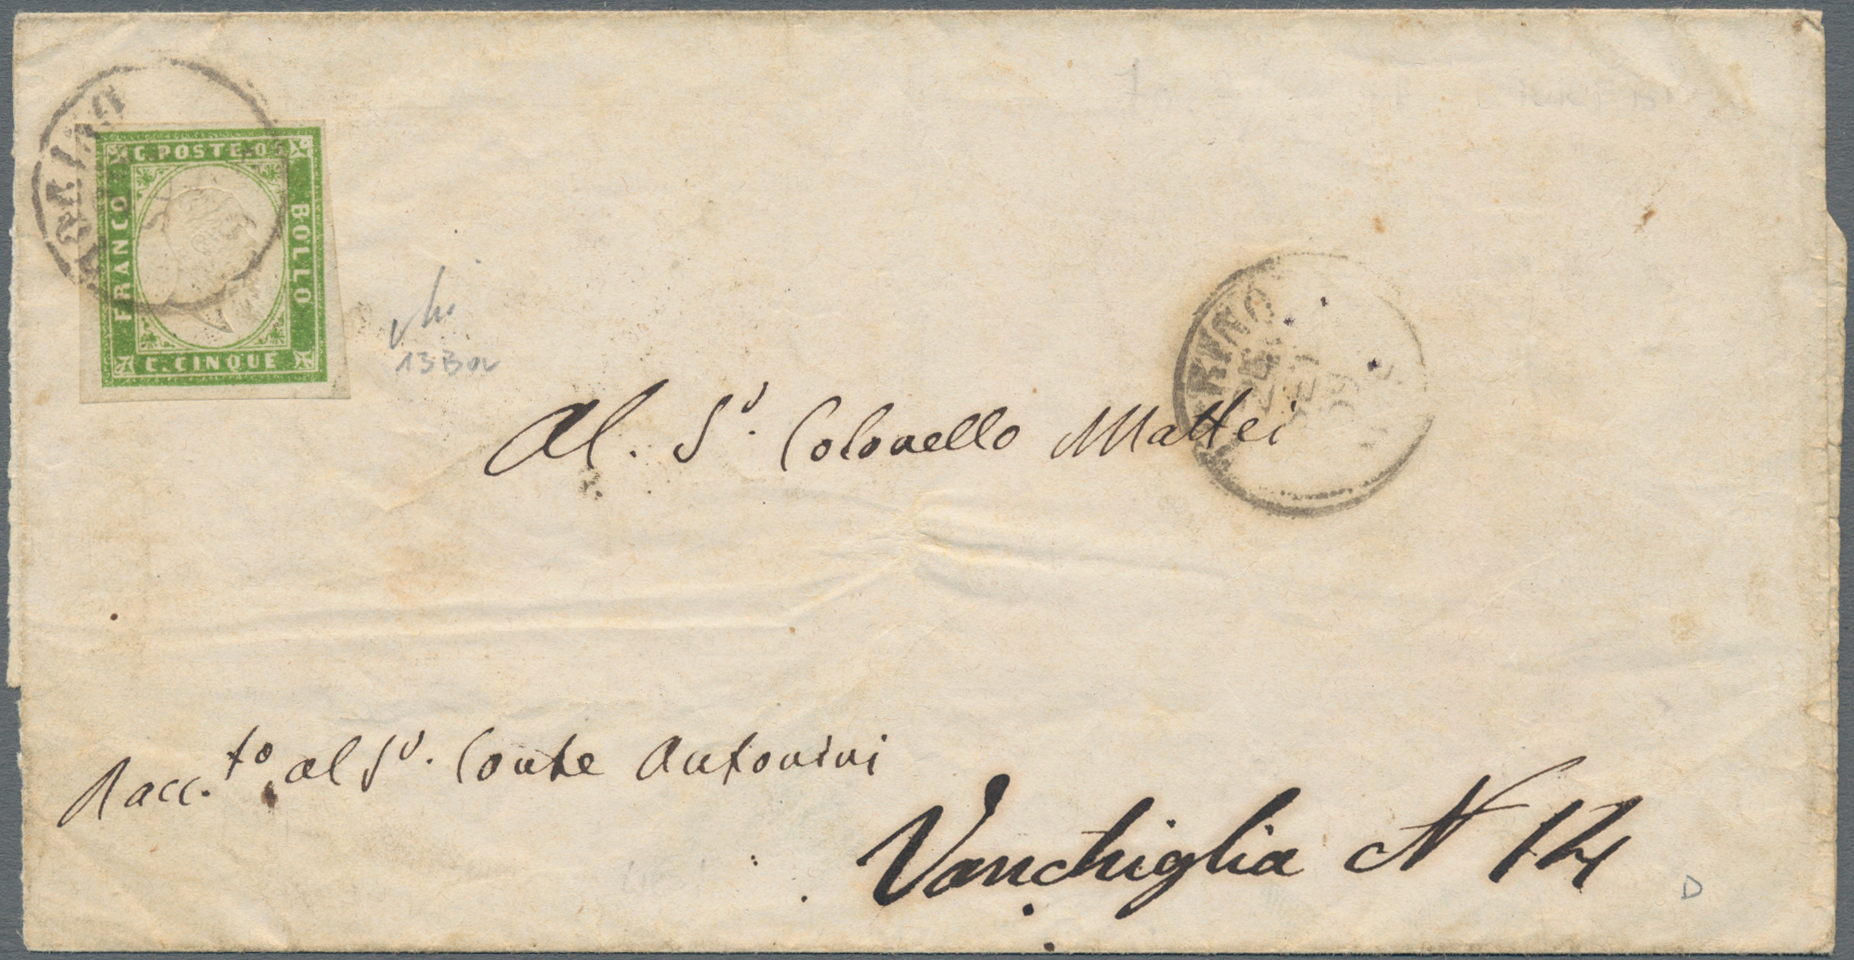 TORINO
C. POSTE 05
FRANCO
BOLLO
C. CINQUE
13Ba
TORINO
59
Al. Sr. Colonello Mattei
Racc.to al Sr. Conte Antonini
Vanchiglia N 14
D